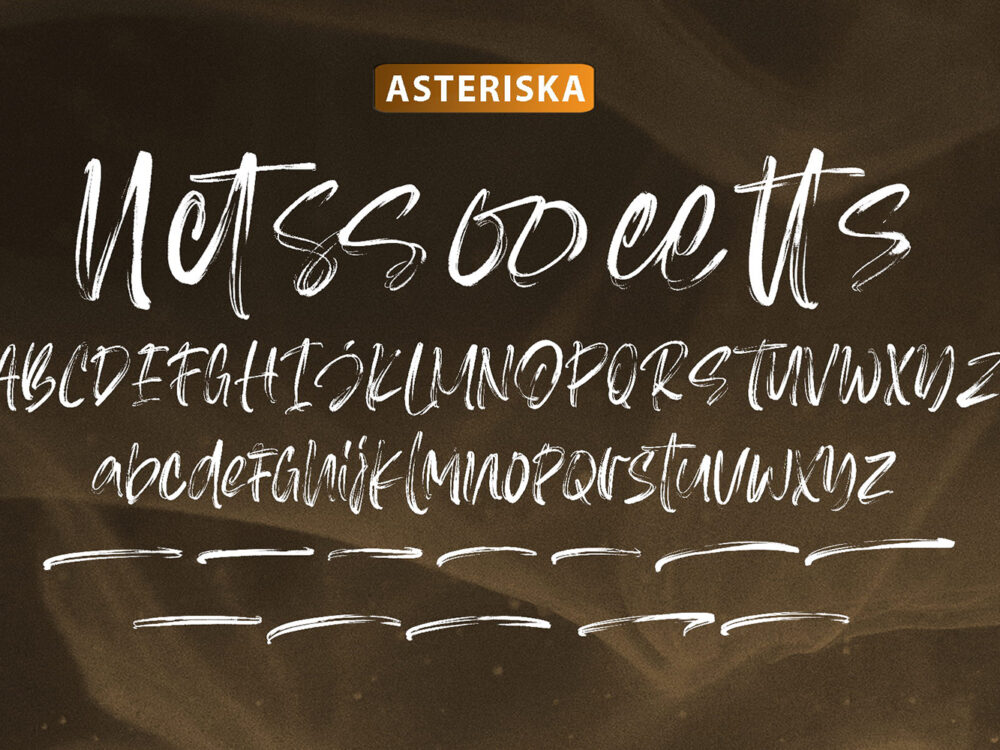 ASTERISKA
Net ss oo ee tt s
ABCDEFGHIJKLMNOPQRSTUVWXYZ
abcdeFGhijklmnopQrstuvwxyz